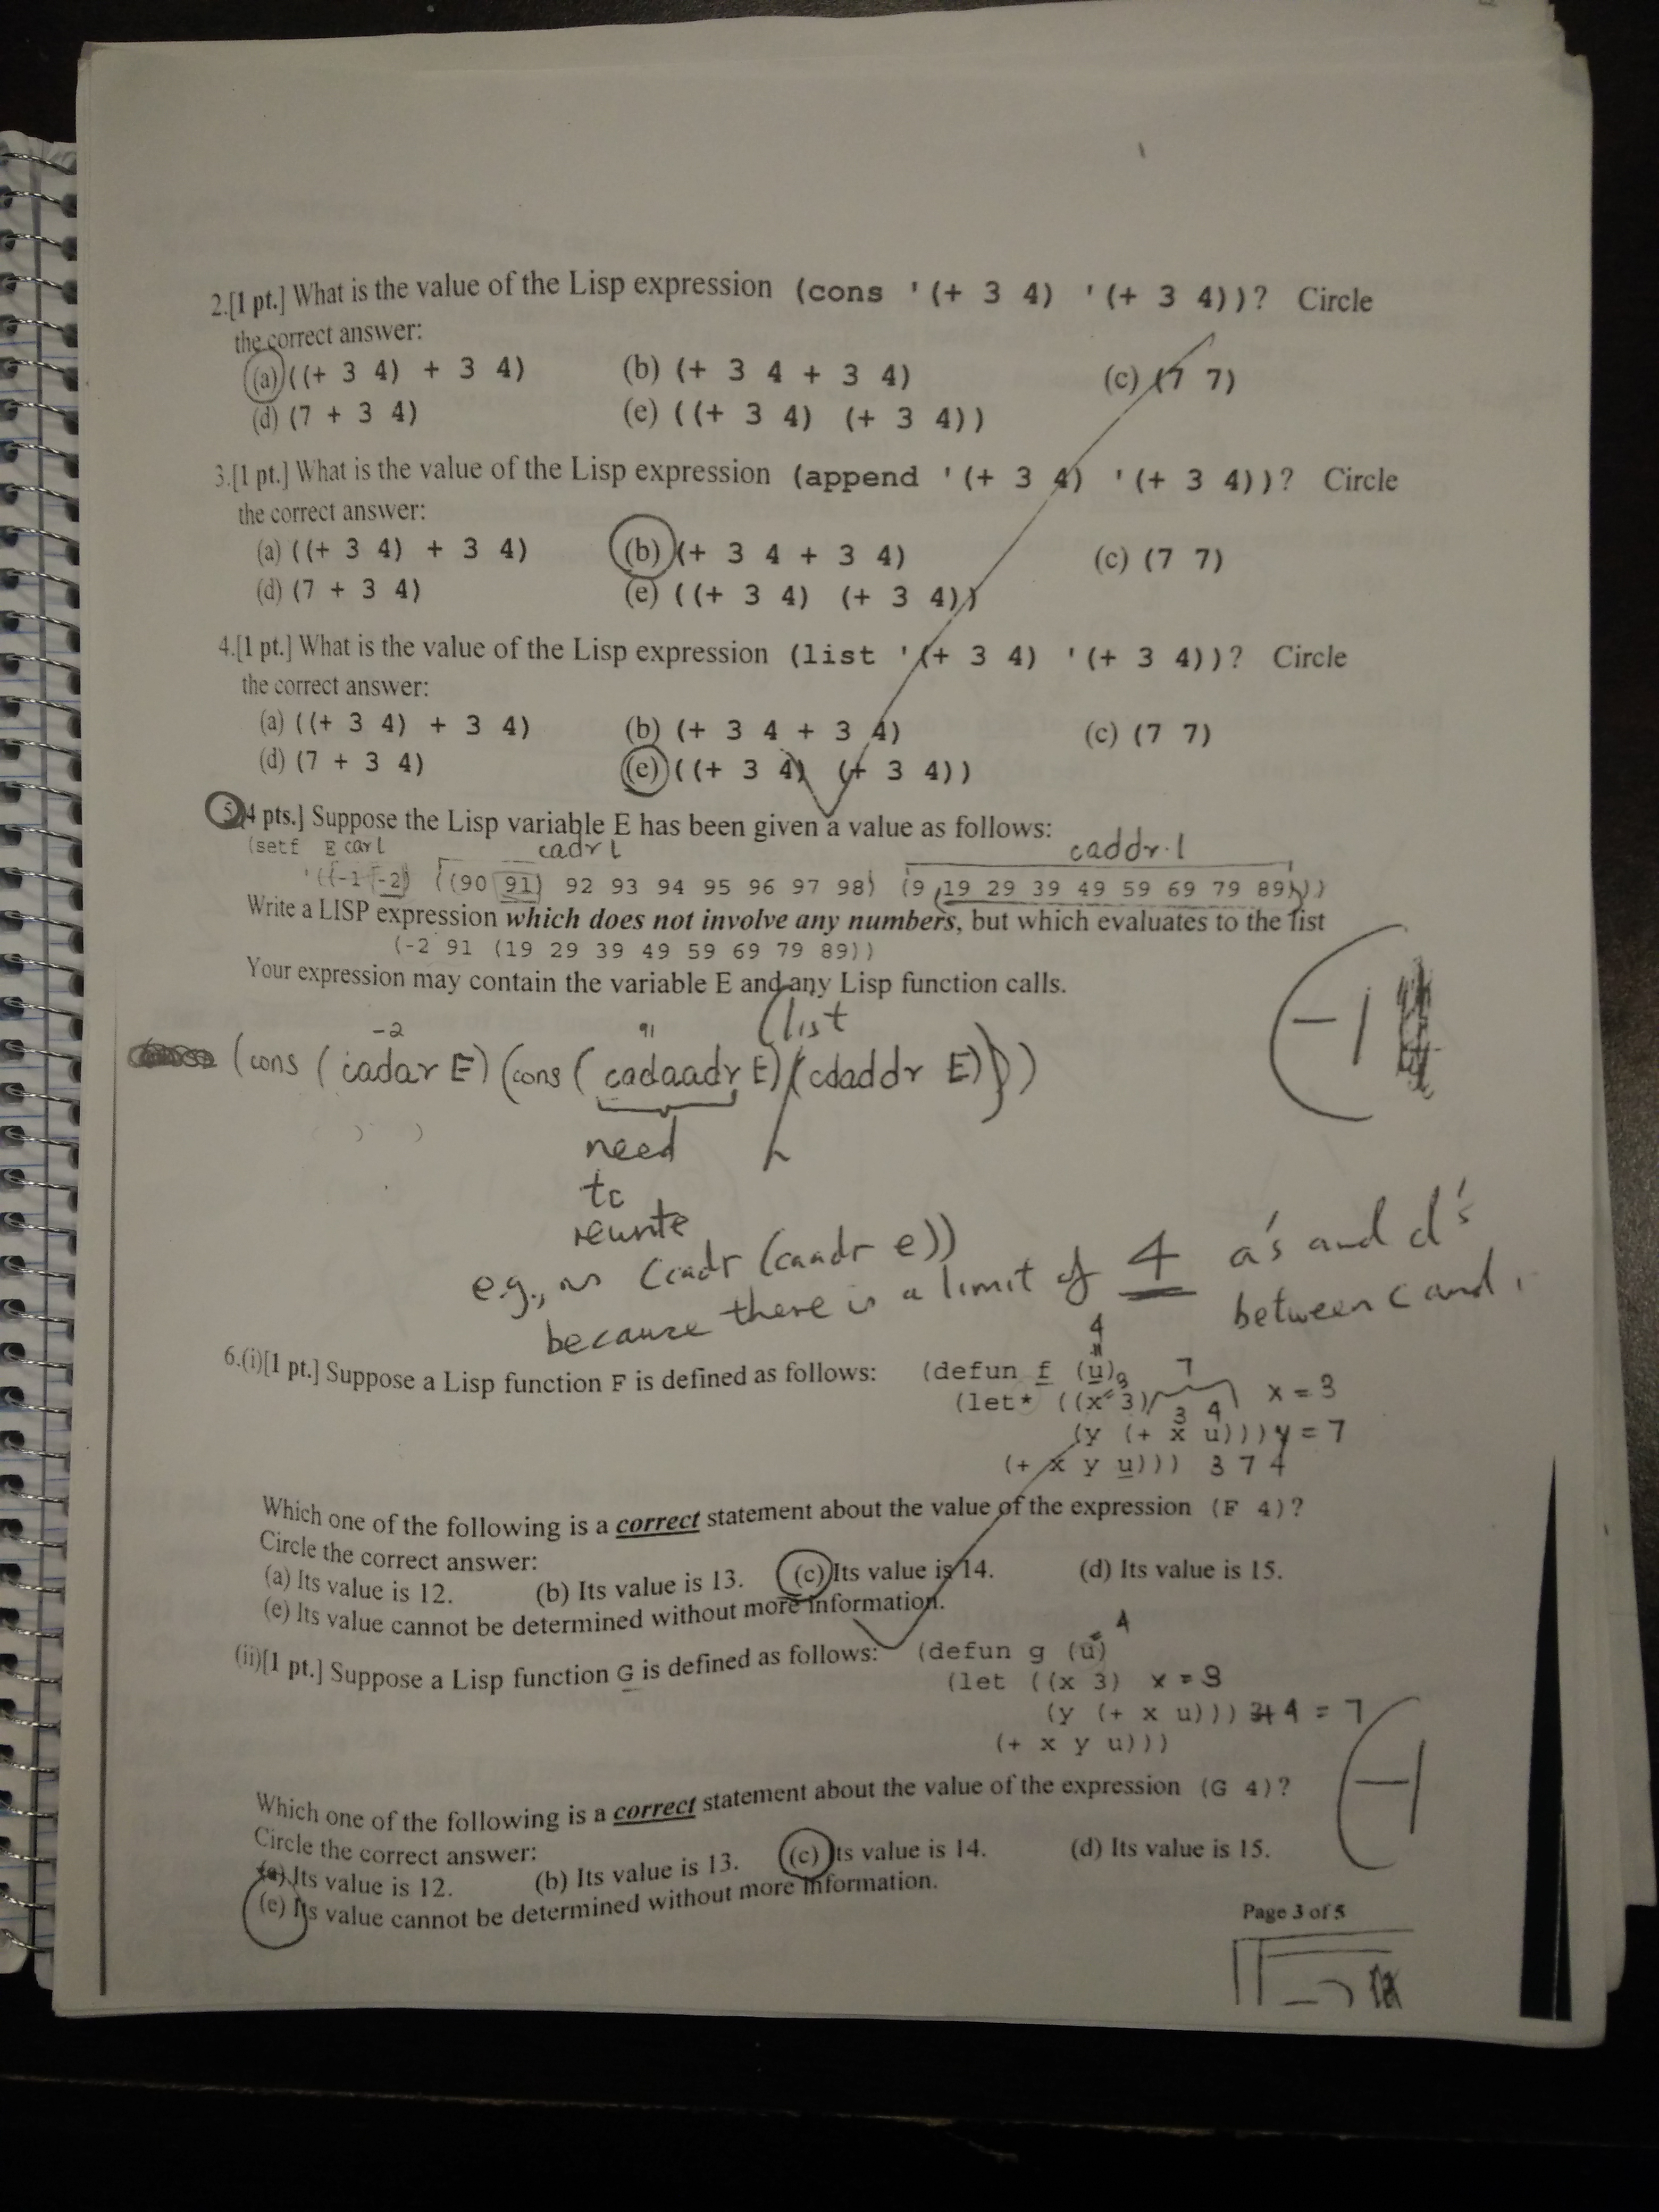 2.[1 pt.] What is the value of the Lisp expression (cons '(+ 3 4) '(+ 3 4))? Circle
the correct answer:
(a) ((+ 3 4) + 3 4) (b) (+ 3 4 + 3 4) (c) (7 7)
(d) (7 + 3 4) (e) ((+ 3 4) (+ 3 4))
3.[1 pt.] What is the value of the Lisp expression (append '(+ 3 4) '(+ 3 4))? Circle
the correct answer:
(a) ((+ 3 4) + 3 4) (b) (+ 3 4 + 3 4) (c) (7 7)
(d) (7 + 3 4) (e) ((+ 3 4) (+ 3 4))
4.[1 pt.] What is the value of the Lisp expression (list '(+ 3 4) '(+ 3 4))? Circle
the correct answer:
(a) ((+ 3 4) + 3 4) (b) (+ 3 4 + 3 4) (c) (7 7)
(d) (7 + 3 4) (e) ((+ 3 4) (+ 3 4))
5.[4 pts.] Suppose the Lisp variable E has been given a value as follows:
(setf E car l cadr l caddr l
'((-1 -2) ((90 91) 92 93 94 95 96 97 98) (9 19 29 39 49 59 69 79 89)))
Write a LISP expression which does not involve any numbers, but which evaluates to the list
(-2 91 (19 29 39 49 59 69 79 89))
Your expression may contain the variable E and any Lisp function calls.
-2 91 (list
(cons (cadar E) (cons (cadaadr E) (cdaddr E))))
-1
need
to
rewrite
e.g., as (cadr (caadr e))
because there is a limit of 4 a's and d's
between c and
6.(i)[1 pt.] Suppose a Lisp function F is defined as follows: (defun f (u)
4
3 7
(let* ((x 3) x = 3
3 4
(y (+ x u))) y = 7
(+ x y u))) 3 7 4
Which one of the following is a correct statement about the value of the expression (F 4)?
Circle the correct answer:
(a) Its value is 12. (b) Its value is 13. (c) Its value is 14. (d) Its value is 15.
(e) Its value cannot be determined without more information.
4
(ii)[1 pt.] Suppose a Lisp function G is defined as follows: (defun g (u)
(let ((x 3) x = 3
(y (+ x u))) 3+4 = 7
(+ x y u)))
-1
Which one of the following is a correct statement about the value of the expression (G 4)?
Circle the correct answer:
(a) Its value is 12. (b) Its value is 13. (c) Its value is 14. (d) Its value is 15.
(e) Its value cannot be determined without more information.
Page 3 of 5